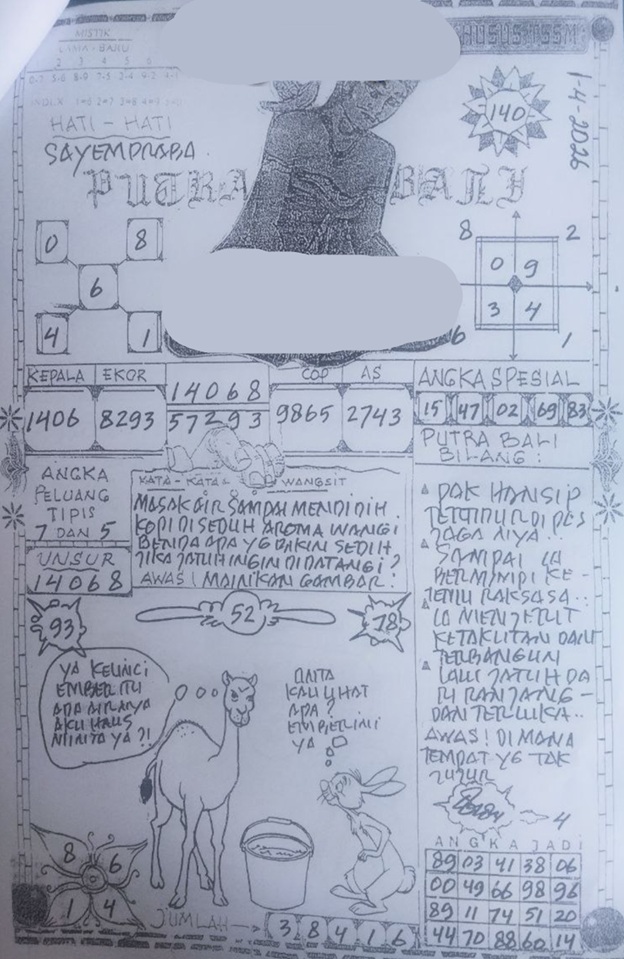 MISTIK
LAMA - BARU
2 3 4 5 6
0=7 5=0 8=9 7=5 2=4 9=2
INDEX
HATI - HATI
SAYEMDRABA
PUTRA BALI
140
1-4-2026
0 8
6
4 1
8 2
0 9
3 4
6 1
KEPALA EKOR
1406 8293
14068
57293
COP AS
9865 2743
ANGKA SPESIAL
15 47 02 69 83
PUTRA BALI
BILANG :
ANGKA
PELUANG
TIPIS
7 DAN 5
UNSUR
14068
KATA - KATA WANGSIT
MASAK AIR SAMPAI MENDIDIH
KOPI DISEDUH AROMA WANGI
BENDA APA YG BIKIN SEDIH
JIKA JATUH INGIN DIDATANGI?
AWAS! MAINKAN GAMBAR!
PAK HANSIP
TERTIDUR DI POS
JAGA NYA..
SAMPAI IA
BERMIMPI KE-
TEMU RAKSASA..
IA MENJERIT
KETAKUTAN DAN
TERBANGUN
LALU JATUH DA
RI RANJANG -
DAN TERLUKA..
AWAS! DIMANA
TEMPAT YG TAK
JUJUR
4
93
52
78
YA KELINCI
EMBER ITU
ADA AIRNYA
AKU HAUS
MINTA YA?!
ONTA
KAU LIHAT
APA?
EMBER INI
YA
8 6
1 4
JUMLAH
3 8 4 1 6
ANGKA JADI
89 03 41 38 06
00 49 66 98 96
89 11 74 51 20
44 70 88 60 14